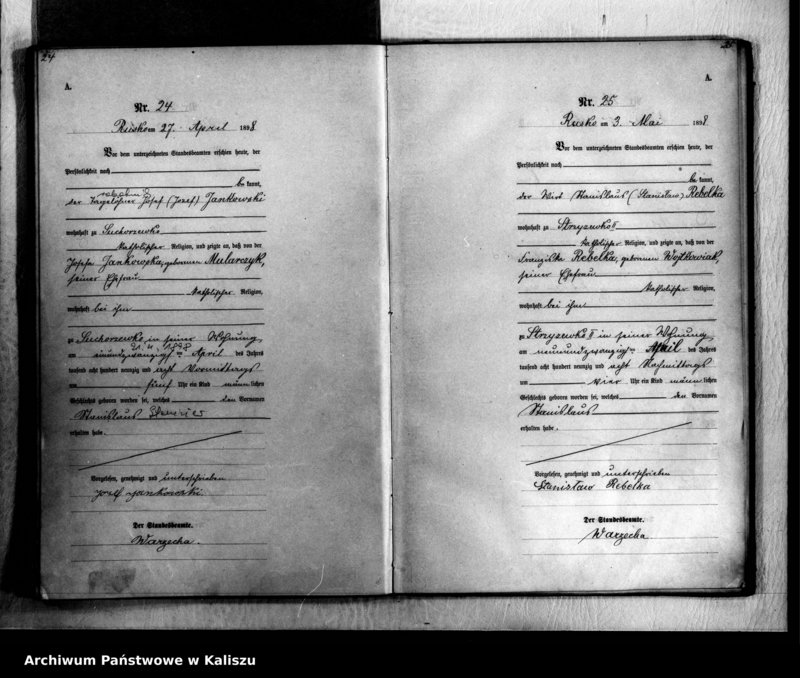 24
A.
Nr. 24
Rusko am 27. April 1898
Vor dem unterzeichneten Standesbeamten erschien heute, der
Persönlichkeit nach
be kannt,
der Tagelöhner Josef (Jozef) Jankowski
wohnhaft zu Suchorzewko
katholischer Religion, und zeigte an, daß von der
Josefa Jankowska, geborenen Mularczyk,
seiner Ehefrau
katholischer Religion,
wohnhaft bei ihm
zu Suchorzewko in seiner Wohnung
am einundzwanzigsten April des Jahres
tausend acht hundert neunzig und acht Vormittags
um fünf Uhr ein Kind männlichen
Geschlechts geboren worden sei, welches den Vornamen
Stanislaus
erhalten habe.
Vorgelesen, genehmigt und unterschrieben
Josef Jankowski
Der Standesbeamte.
Warzecha.
25
A.
Nr. 25
Rusko am 3. Mai 1898
Vor dem unterzeichneten Standesbeamten erschien heute, der
Persönlichkeit nach
be kannt,
der Wirt Stanislaus (Stanisław) Rebelka
wohnhaft zu Stryzewko II
katholischer Religion, und zeigte an, daß von der
Franziska Rebelka, geborenen Wojtkowiak,
seiner Ehefrau
katholischer Religion,
wohnhaft bei ihm
zu Stryzewko II in seiner Wohnung
am neunundzwanzigsten April des Jahres
tausend acht hundert neunzig und acht Nachmittags
um vier Uhr ein Kind männlichen
Geschlechts geboren worden sei, welches den Vornamen
Stanislaus
erhalten habe.
Vorgelesen, genehmigt und unterschrieben
Stanisław Rebelka
Der Standesbeamte.
Warzecha
Archiwum Państwowe w Kaliszu